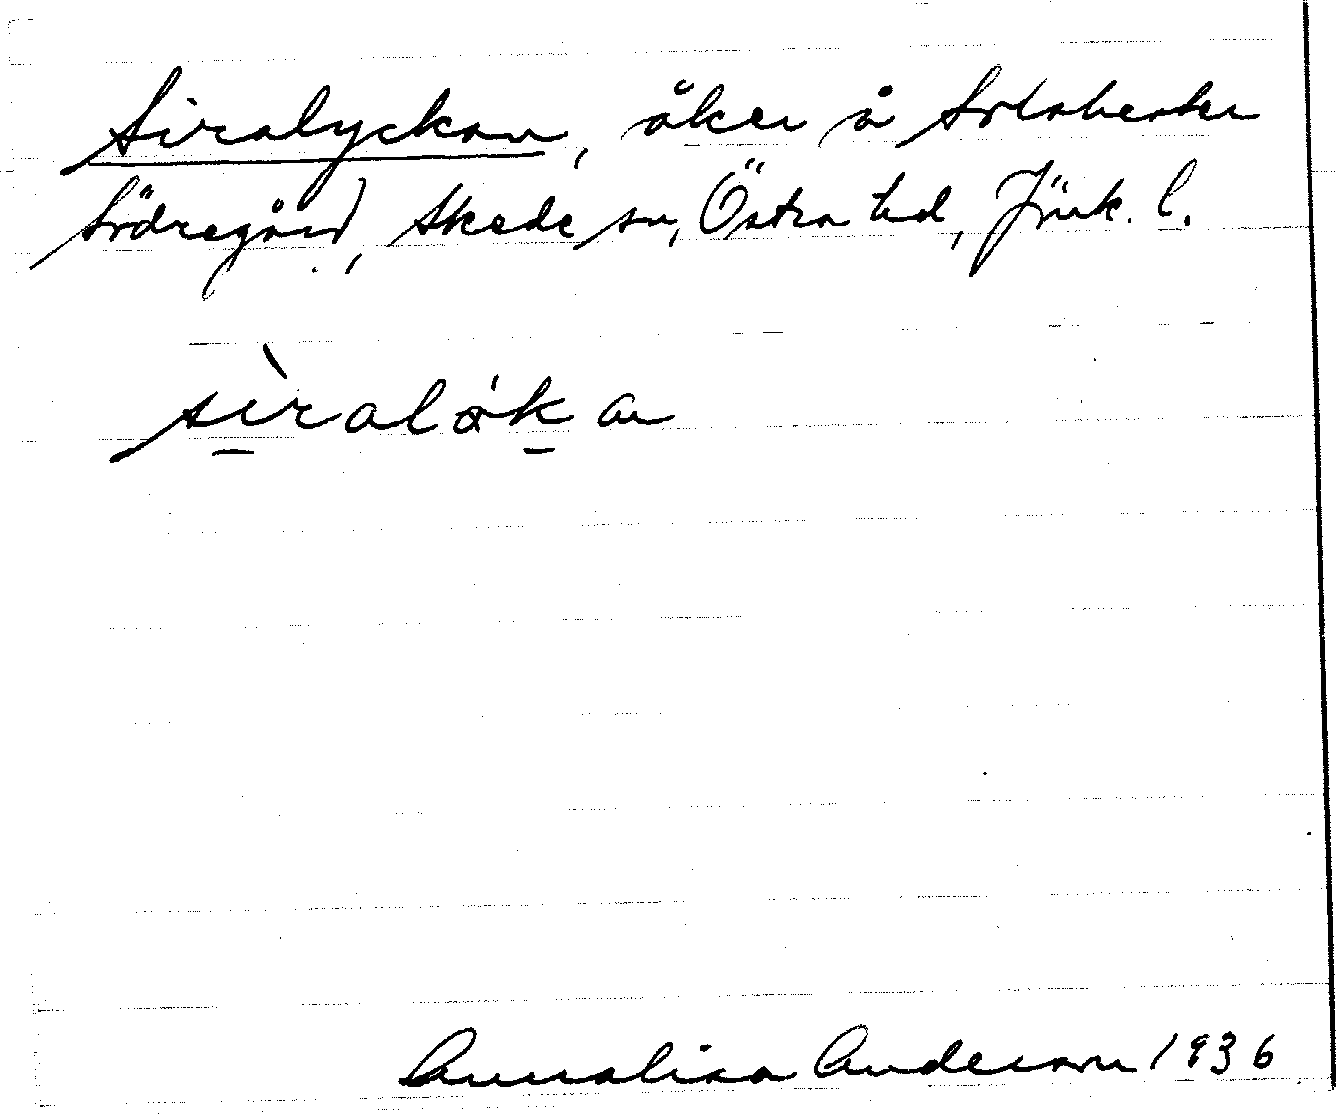 Siralyckan, åker å Solaberken
Södregård, Skede sn, Östra hd, Jönk. l.
sìralö́kan
Annalisa Anderson 1936